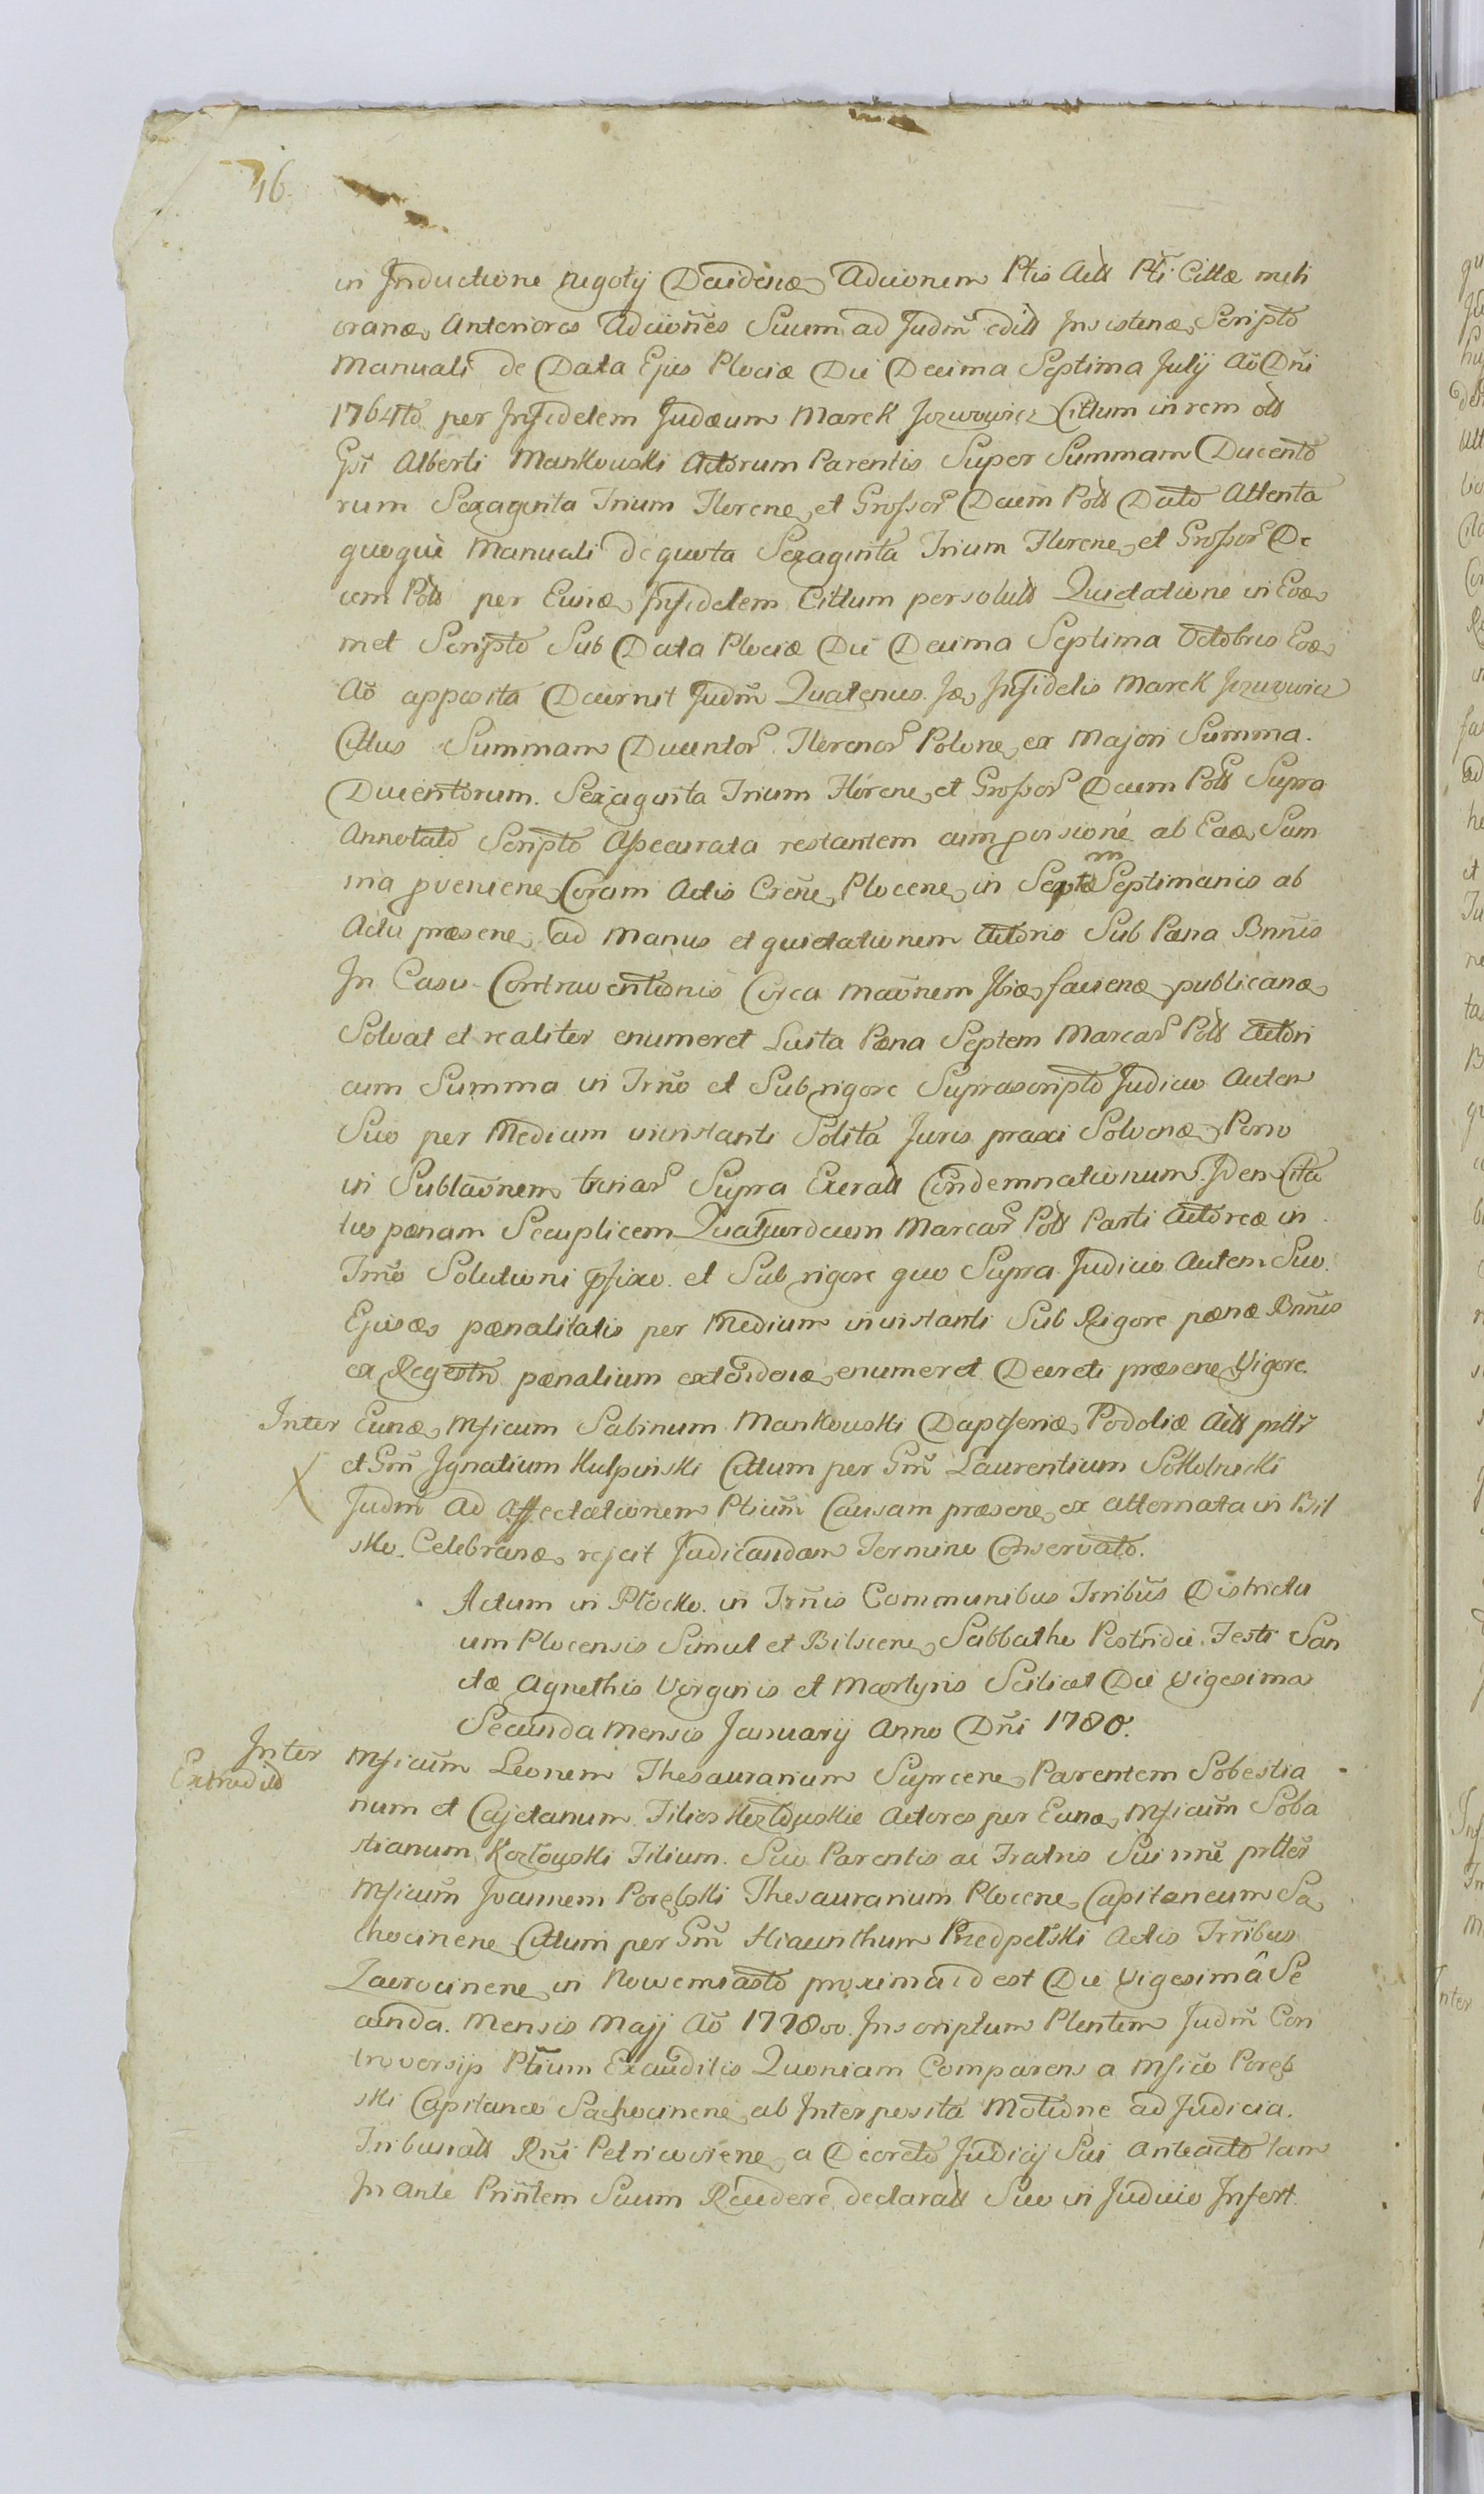 16.
in Inductione negoty Decidenæ Adcionem Ptis Actt Pti Cittæ meli
oranæ Anteriores Adciones Suum ad Judm edict Insistenæ Scripto
Manuali de Data Ejus Plociæ Die Decima Septima July Ao Dni
1764to per Infidelem Judæum Marek Jozwowicz Cittum in rem ott
Gsi Alberti Mankowski Actorum Parentis Super Summam Ducento
rum Sexaginta Trium Florene et Grossor Decem Poll Dato Attenta
quoque Manuali de quota Sexaginta Trium Florene et Grossor De
cem Poll per Eunæ Infidelem Cittum persolutt Quietatione in Eoæ
met Scripto Sub Data Plociæ Die Decima Septima Octobris Eoæ
Ao apposita Decernit Judm Quatenus Iæ Infidelis Marek Jozwowicz
Cittus Summam Ducentor Florenor Polone ex Majori Summa.
Ducentorum. Sexaginta Trium Florene et Grossor Decem Poll Supra
Annotato Scripto Assecurata restantem cum provisione ab Eaæ Sum
ma proveniene Coram Actis Crene Plocene in Septem Septimanis ab
Actu præsene ad Manus et quietationem Actoris Sub Pæna Bnnis
In Casu Contraventionis Circa maonem Ibiæ facienæ publicanæ
Solvat et realiter enumeret Luita Pæna Septem Marcar Poll Actori
cum Summa in Trno et Sub rigore Suprascripto Judicio Autem
Suo per Medium vinistanti Solita Juris praxi Solvenæ Porro
in Sublaonem trinar Supra Exeratt Condemnationum. Idem Cita
tus pænam Secuplicem Quatuordecim Marcar Poll Parti Actoreæ in
Trno Solutioni pfixo. et Sub rigore quo Supra Judicio Autem Suo.
Ejusæ pænalitatis per Medium vinistanti Sub Rigore pænæ Bnnis
ex Regestro pænalium extendenæ enumeret Decreti præsene Vigore.
Inter Eunæ Mficum Sabinum Mankowski Dapiferiæ Podoliæ Actt pttr
et Gm Ignatium Kulpinski Cittum per Gm Laurentium Sokolnicki
Judm ad Affectationem Ptium Causam præsene ex alternata in Bil
sko. Celebranæ rejcit Judicandam Termino Conservato.
Actum in Płocko. in Trnis Communibus Trribus Districtu
um Plocensis Simul et Bilscene Sabbatho Postridie Festi San
ctæ Agnethis Virginis et Martyris Scilicet Die Vigesima
Secunda Mensis January Anno Dni 1780.
Inter
Extradid
Mficum Leonem Thesaurarium Suprcene Parentem Sobestia
num et Cajetanum Filios Actores per Eunæ Mficum Soba
stianum Kozłowski Filium. Suo Parentis ac Fratris Sui nne ptter
Mficum Joannem Porębski Thesaurarium Plocene Capitaneum Sa
chocinene Cittum per Gm Hiacinthum Przedpełski Actis Trribus
Zacrocinene in Nowemiasto proxima id est Die Vigesimâ Se
cunda. Mensis Majj Ao 1778vo. Inscriptum Plentem Judm Con
troversijs Ptium Exauditis Quoniam Comparens a Mfico Poręb
ski Capitaneo Sachocinene ab Interposita Motione ad Judicia.
Tribunall Rni Petricoviene a Decreto Judicij Sui Anteacto tam
In Ante Prinntem Suum Recedere declaratt Suo in Judicio Infert.